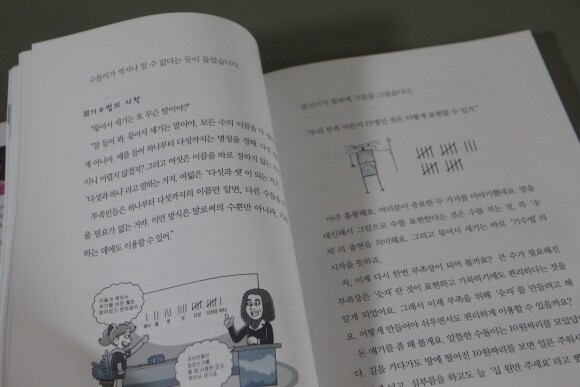 수돌이가 역시나 알 수 없다는 듯이 물었습니다.
기수법의 시작
"묶어서 세기는 또 무슨 말이야?"
"잘 들어 봐. 묶어서 세기는 말이야, 모든 수의 이름을 다
게 아니야. 예를 들어 하나부터 다섯까지는 명칭을 정해
이니 어렵지 않겠지? 그리고 여섯은 이름을 따로 정하지 않는
'다섯과 하나'라고 말하는 거지. 여덟은 '다섯과 셋'이 되는
부족민들은 하나부터 다섯까지의 이름만 알면, 다른 수들을
울 필요가 없는 거야. 이런 방식은 말로써의 수뿐만 아니라,
하는 데에도 이용할 수 있어."
하나 둘 셋 넷 다섯 다섯과 하나
광선이가 칠판에 그림을 그렸습니다.
"우리 부족 어른이 23명인 것은 이렇게 표현할 수 있지."
아주 훌륭해요. 여러분이 중요한 두 가지를 이야기했네요. 말을
대신해서 그림으로 수를 표현한다는 것은 수를 적는 것, 즉 '숫
자'의 출현을 의미해요. 그리고 묶어서 세기는 바로 '기수법'의
시작을 뜻하죠.
자, 이제 다시 한번 부족장이 되어 볼까요? 큰 수가 필요해진
부족장은 '숫자'란 것이 표현하고 기록하기에도 편리하다는 것을
알게 되었어요. 그래서 이제 부족을 위해 '숫자'를 만들려고 해
요. 어떻게 만들어야 쉬우면서도 편리하게 이용할 수 있을까요?
돈 얘기를 좀 해 볼게요. 알뜰한 수동이는 10원짜리를 모았답
다. 길을 가다가도 땅에 떨어진 10원짜리를 보면 얼른 주워서
심부름을 하고도 늘 '십 원만 주세요'라고 했